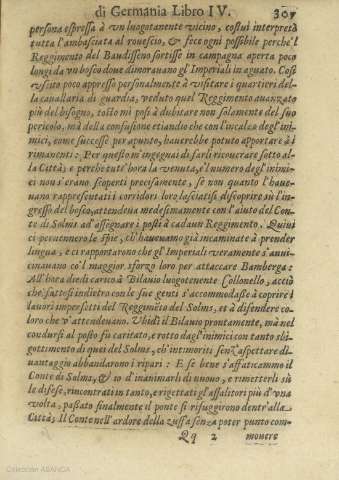 di Germania Libro IV. 307
persona espressa à vn luogotenente vicino, costui interpretò
tutta l'ambasciata al rouescio, & fece ogni possibile perche'l
Reggimento del Baudisseno fortisse in campagna aperta poco
longi da vn bosco doue dimorauano gl'Imperiali in aguato. Così
vscito poco appresso personalmente à visitare i quartieri del-
la cauallaria di guardia, veduto quel Reggimento auanzato
più del bisogno, tosto mi posi à dubitare non solamente del suo
pericolo, mà della confusione etiandio che con l'incalco degl'ini-
mici, come successe per apunto, hauerebbe potuto apportare à i
rimanenti: Per questo m'ingegnai di farli ricourare sotto al-
la Città; e perche tutt'hora la venuta, e'l numero degl'inimi-
ci non s'erano scoperti precisamente, se non quanto l'haue-
uano rappresentati i corridori loro lasciatisi discoprire sù l'in-
gresso del bosco, attendeua medesimamente con l'aiuto del Con-
te di Solms ad'assegnare i posti à cadaun Reggimento. Quiui
ci peruennero le spie, ch'haueuamo già incaminate à prender
lingua, e ci rapportarono che gl'Imperiali veramente s'auui-
cinauano co'l maggior sforzo loro per attaccare Bamberga:
All'hora diedi carico à Bilauio luogotenente Collonello, acciò
che fattosi indietro con le sue genti s'accommodasse à coprire i
lauori imperfetti del Reggimẽto del Solms, et à difendere co-
loro che v'attendeuano. Vbidì il Bilauio prontamente, mà nel
condursi al posto fù caricato, e rotto dagl'inimici con tanto sbi-
gottimento di quei del Solms, ch'intimoriti senz'aspettare di-
uantaggio abbandarono i ripari: E se bene s'affaticammo il
Conte di Solms, & io d'inanimarli di nuouo, e rimetterli sù
le difese, rincontrati in tanto, e rigettati gl'assalitori più d'vna
volta, passato finalmente il ponte si rifuggirono dentr'alla
Città; Il Conte nell'ardore della zuffa senza poter punto com-
Qq 2 mouere
Colección ABANCA